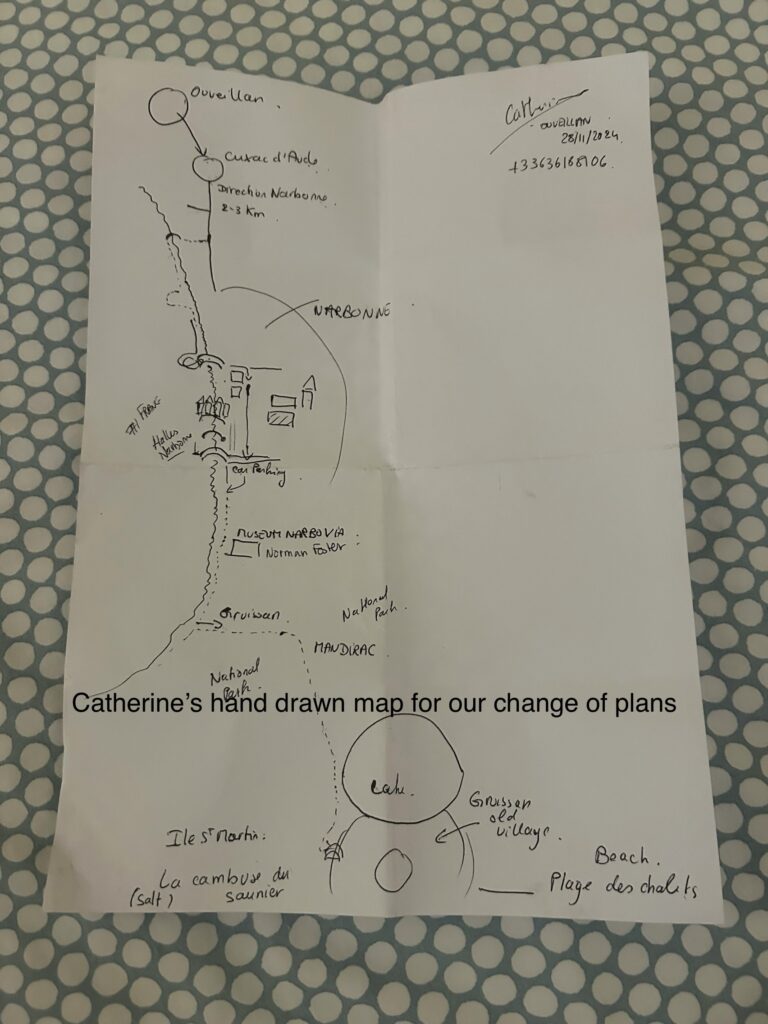 Ouveillan.
Catherine
OUVEILLAN
28/11/2024
+33636188106.
Cuxac d'Aude
Direction Narbonne
2-3 Km
NARBONNE
Halles
Narbonne
Car Parking
MUSEUM NARBOVIA :
Norman Foster
Gruissan.
National
Park.
MANDIRAC
National
Park.
Catherine's hand drawn map for our change of plans
Lake.
Grussan
old
village.
Ile St Martin:
Beach.
La cambuse du
(salt) saunier
Plage des chalets